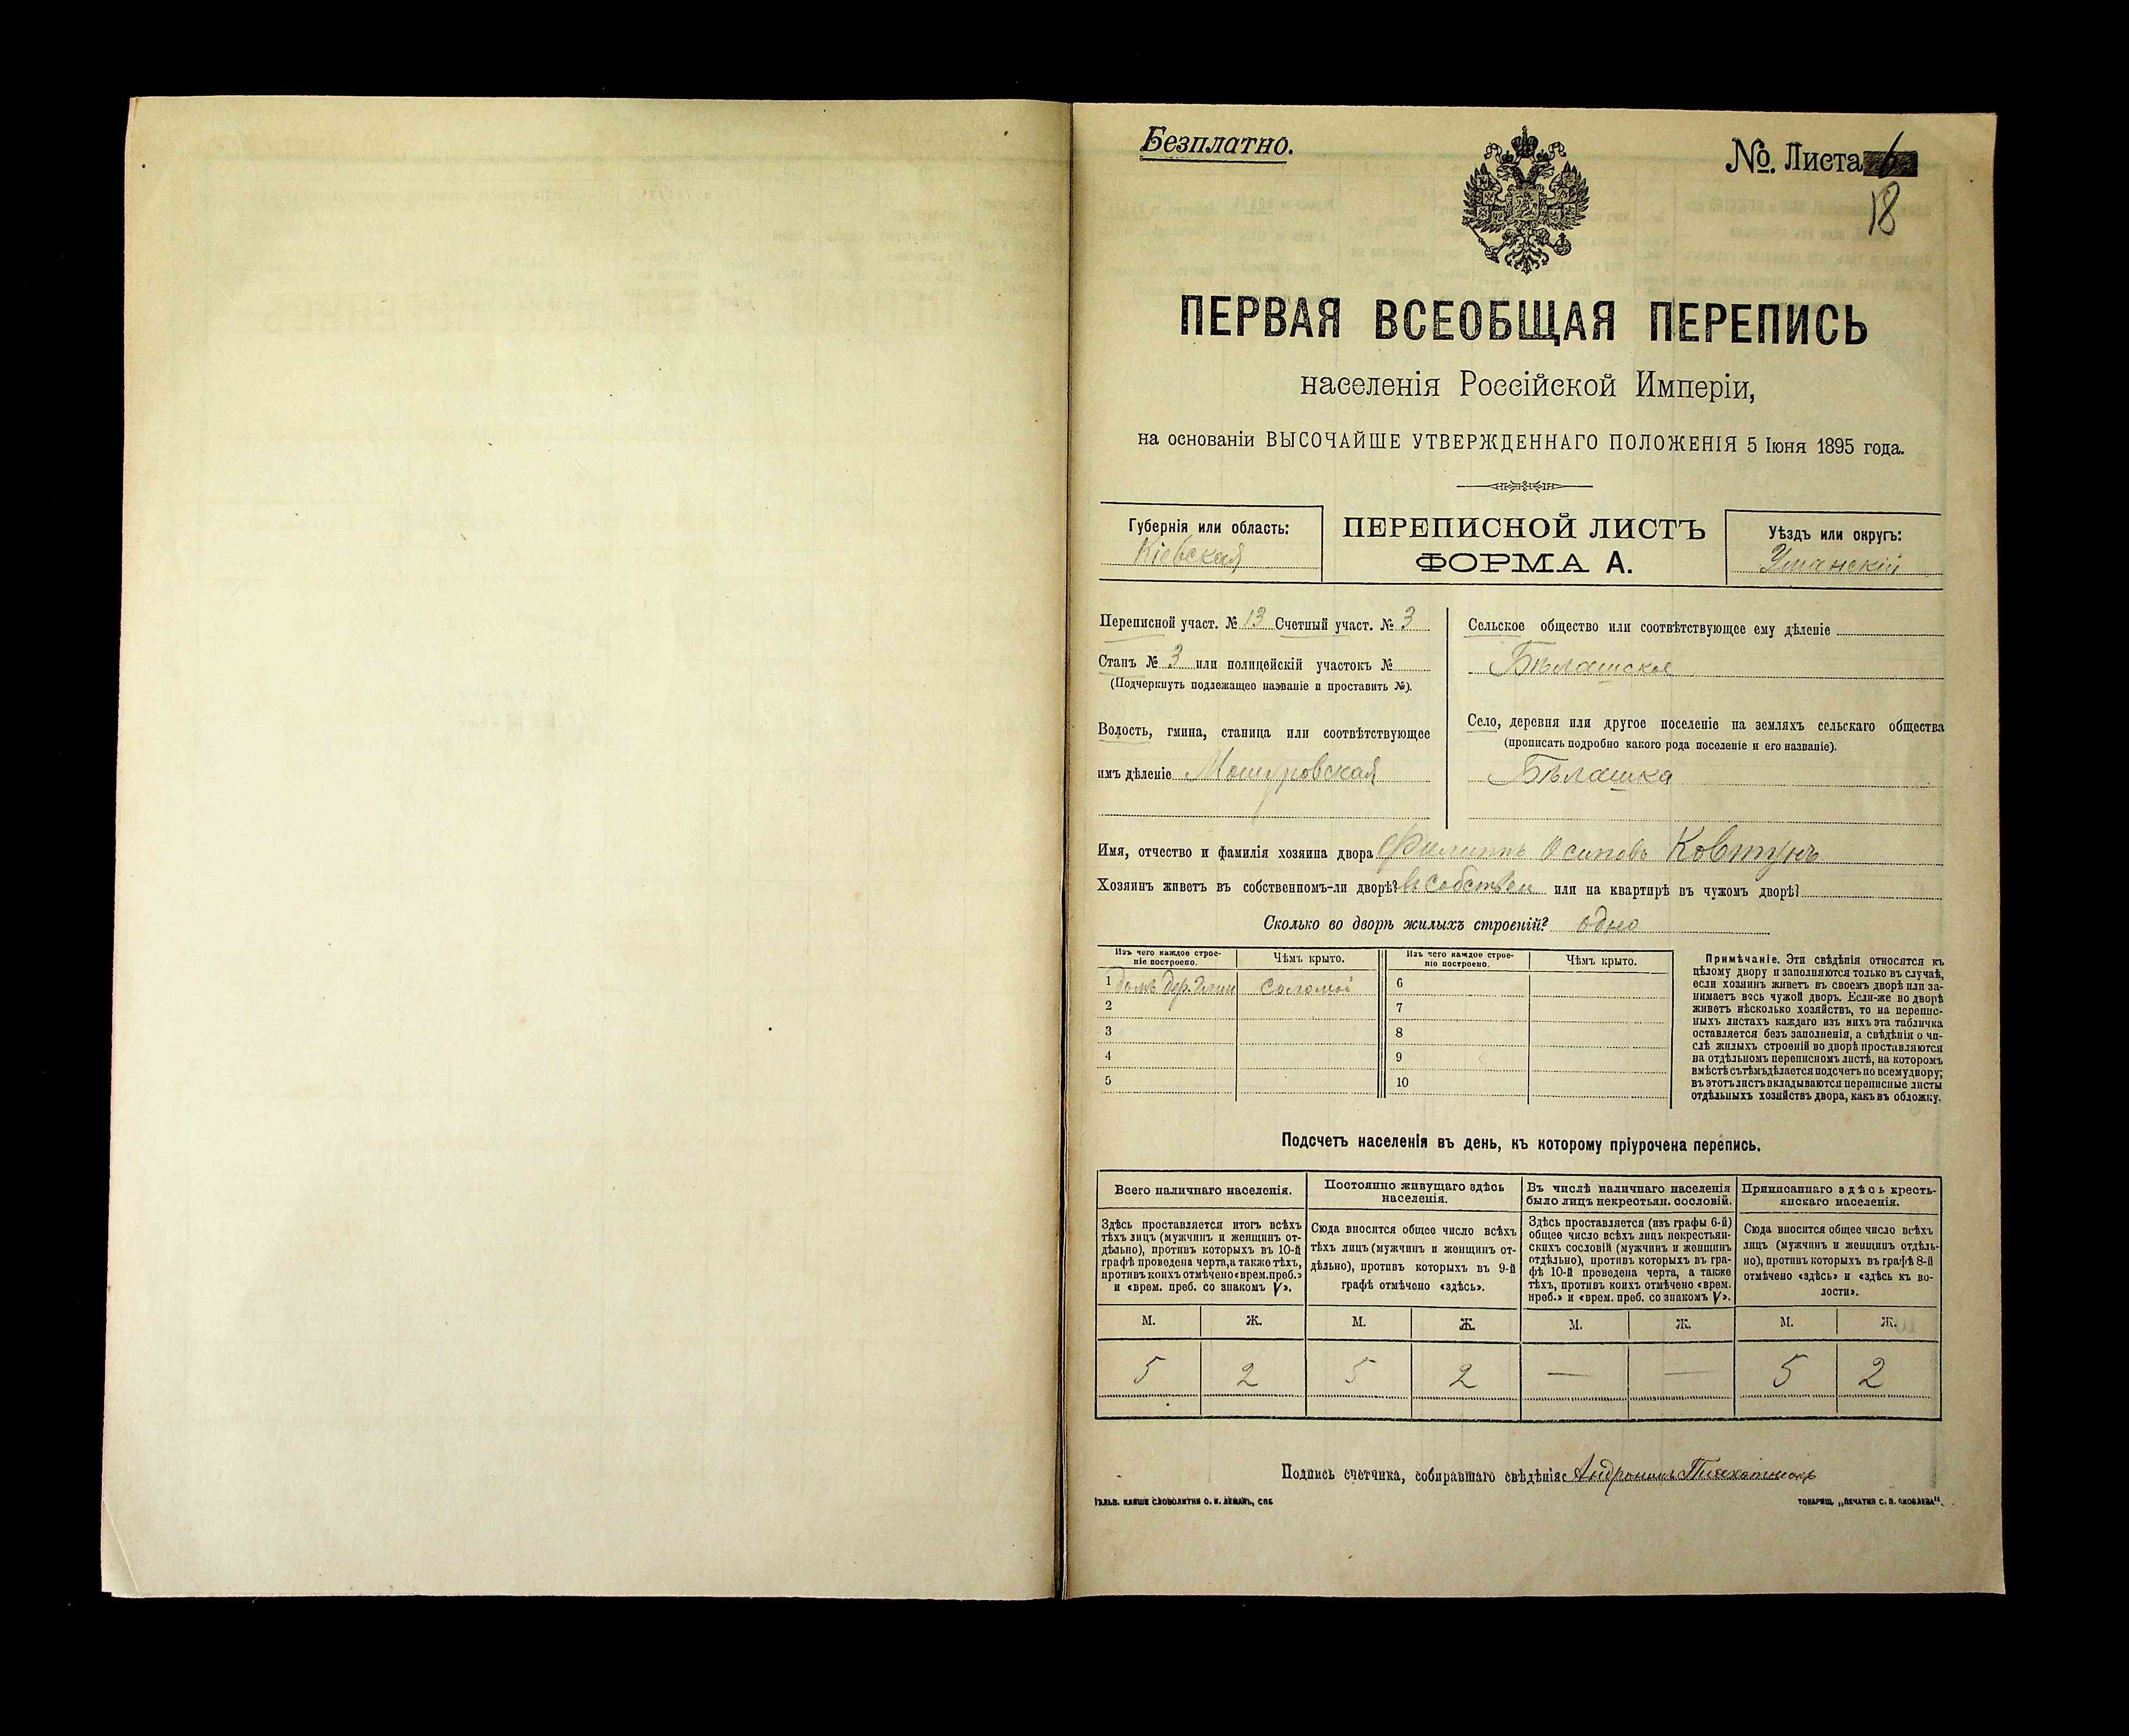 Безплатно.
№ Листа 6
18
ПЕРВАЯ ВСЕОБЩАЯ ПЕРЕПИСЬ
населенія Россійской Имперіи,
на основаніи ВЫСОЧАЙШЕ УТВЕРЖДЕННАГО ПОЛОЖЕНІЯ 5 Іюня 1895 года.
Губернія или область:
Кіевская
ПЕРЕПИСНОЙ ЛИСТЪ
ФОРМА А.
Уѣздъ или округъ:
Уманскій
Переписной участ. № 13 Счетный участ. № 3
Станъ № 3 или полицейскій участокъ №
(Подчеркнуть подлежащее названіе и проставить №).
Волость, гмина, станица или соотвѣтствующее
имъ дѣленіе Мошуровская
Сельское общество или соотвѣтствующее ему дѣленіе
Бѣлашское
Село, деревня или другое поселеніе на земляхъ сельскаго общества
(прописать подробно какого рода поселеніе и его названіе).
Бѣлашка
Имя, отчество и фамилія хозяина двора Филиппъ Осиповъ Ковтунъ
Хозяинъ живетъ въ собственномъ-ли дворѣ? въ собствен или на квартирѣ въ чужомъ дворѣ?
Сколько во дворѣ жилыхъ строеній? одно
Изъ чего каждое строе-
ніе построено.
Чѣмъ крыто.
Изъ чего каждое строе-
ніе построено.
Чѣмъ крыто.
1 домъ дер. глин соломой 6
2 7
3 8
4 9
5 10
Примѣчаніе. Эти свѣдѣнія относятся къ
цѣлому двору и заполняются только въ случаѣ,
если хозяинъ живетъ въ своемъ дворѣ или за-
нимаетъ весь чужой дворъ. Если-же во дворѣ
живетъ нѣсколько хозяйствъ, то на перепис-
ныхъ листахъ каждаго изъ нихъ эта табличка
оставляется безъ заполненія, а свѣдѣнія о чи-
слѣ жилыхъ строеній во дворѣ проставляются
на отдѣльномъ переписномъ листѣ, на которомъ
вмѣстѣ съ тѣмъ дѣлается подсчетъ по всему двору;
въ этотъ листъ вкладываются переписные листы
отдѣльныхъ хозяйствъ двора, какъ въ обложку.
Подсчетъ населенія въ день, къ которому пріурочена перепись.
Всего наличнаго населенія.
Здѣсь проставляется итогъ всѣхъ
тѣхъ лицъ (мужчинъ и женщинъ от-
дѣльно), противъ которыхъ въ 10-й
графѣ проведена черта, а также тѣхъ,
противъ коихъ отмѣчено «врем. преб.»
и «врем. преб. со знакомъ V».
Постоянно живущаго здѣсь
населенія.
Сюда вносится общее число всѣхъ
тѣхъ лицъ (мужчинъ и женщинъ от-
дѣльно), противъ которыхъ въ 9-й
графѣ отмѣчено «здѣсь».
Въ числѣ наличнаго населенія
было лицъ некрестьян. сословій.
Здѣсь проставляется (изъ графы 6-й)
общее число всѣхъ лицъ некрестьян-
скихъ сословій (мужчинъ и женщинъ
отдѣльно), противъ которыхъ въ гра-
фѣ 10-й проведена черта, а также
тѣхъ, противъ коихъ отмѣчено «врем.
преб.» и «врем. преб. со знакомъ V».
Приписаннаго здѣсь кресть-
янскаго населенія.
Сюда вносится общее число всѣхъ
лицъ (мужчинъ и женщинъ отдѣль-
но), противъ которыхъ въ графѣ 8-й
отмѣчено «здѣсь» и «здѣсь къ во-
лости».
М. Ж. М. Ж. М. Ж. М. Ж.
5 2 5 2 — — 5 2
Подпись счетчика, собиравшаго свѣдѣнія:
ГАЛЬВ. КЛИШЕ СЛОВОЛИТНИ О. И. ЛЕМАНЪ, СПБ
ТОВАРИЩ. „ПЕЧАТНЯ С. П. ЯКОВЛЕВА“.